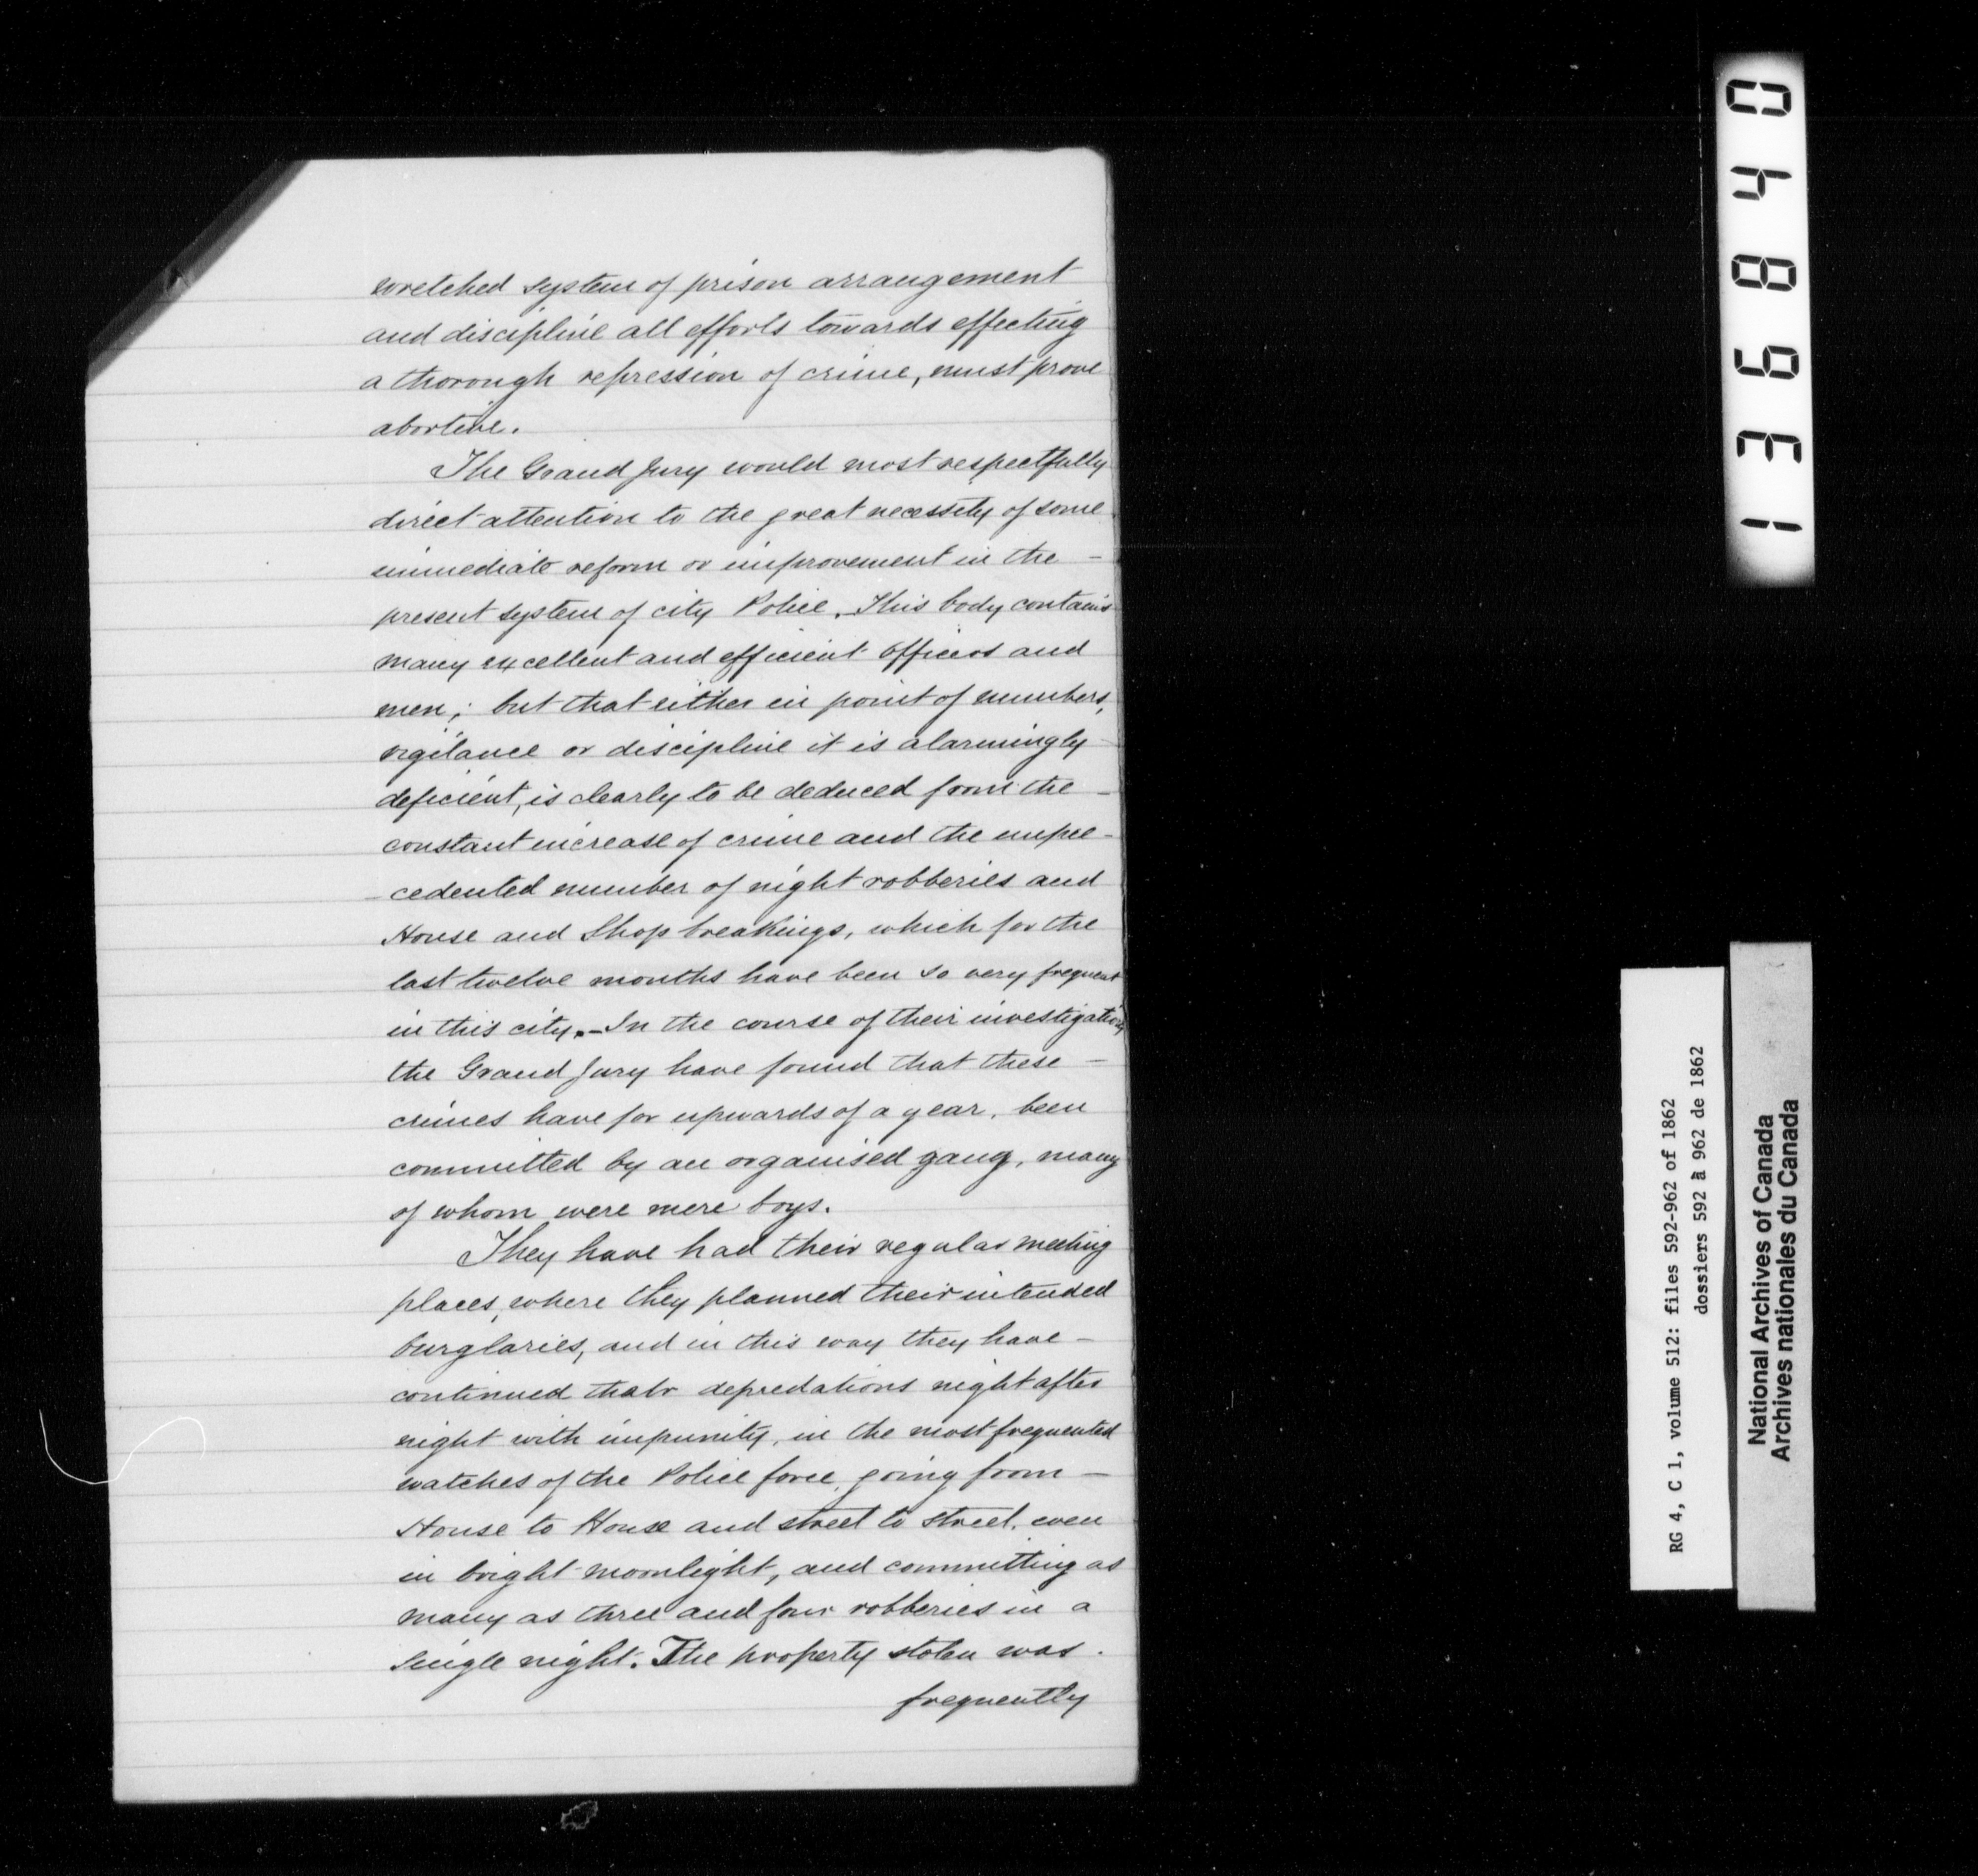 wretched system of prison arrangement
and discipline all efforts towards effecting
a thorough repression of crime, must prove
abortive.
The Grand Jury would most respectfully
direct attention to the great necessity of some
immediate reform or improvement in the -
present system of city Police. This body contains
many excellent and efficient officers and
men; but that either in point of numbers,
vigilance or discipline it is alarmingly
deficient, is clearly to be deduced from the -
constant increase of crime and the unpre-
-cedented number of night robberies and
House and Shop breakings, which for the
last twelve months have been so very frequent
in this city. - In the course of their investigations
the Grand Jury have found that these -
crimes have for upwards of a year, been
committed by an organised gang, many
of whom were mere boys.
They have had their regular meeting
places, where they planned their intended
burglaries, and in this way they have -
continued their depredations night after
night with impunity, in the most frequented
watches of the Police force, going from -
House to House and street to street, even
in bright moonlight, and committing as
many as three and four robberies in a
single night. The property stolen was.
frequently
136840
RG 4, C 1, volume 512: files 592-962 of 1862
dossiers 592 à 962 de 1862
National Archives of Canada
Archives nationales du Canada